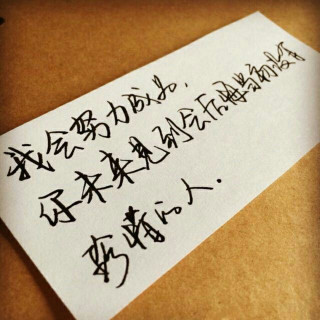 我会努力成为，
你未来见到会后悔当初没有
珍惜的人．